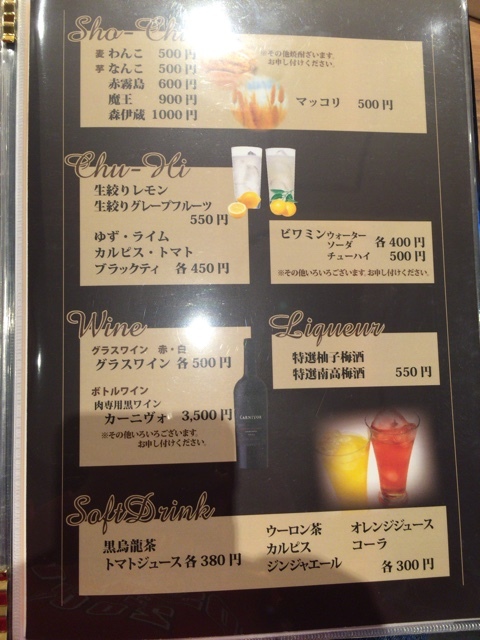 Sho-Chu
麦 わんこ 500円
芋 なんこ 500円
赤霧島 600円
魔王 900円
森伊蔵 1000円
※その他焼酎ざいます。
お申し付けください。
マッコリ 500円
Chu-Hi
生絞りレモン
生絞りグレープフルーツ
550円
ゆず・ライム
カルピス・トマト
ブラックティ 各450円
ビワミン ウォーター
ソーダ 各400円
チューハイ 500円
※その他いろいろございます。お申し付けください。
Wine
グラスワイン 赤・白
グラスワイン 各500円
ボトルワイン
肉専用黒ワイン
カーニヴォ 3,500円
※その他いろいろございます。
お申し付けください。
CARNIVOR
Liqueur
特選柚子梅酒
特選南高梅酒 550円
SoftDrink
黒烏龍茶
トマトジュース 各380円
ウーロン茶 オレンジジュース
カルピス コーラ
ジンジャエール 各300円